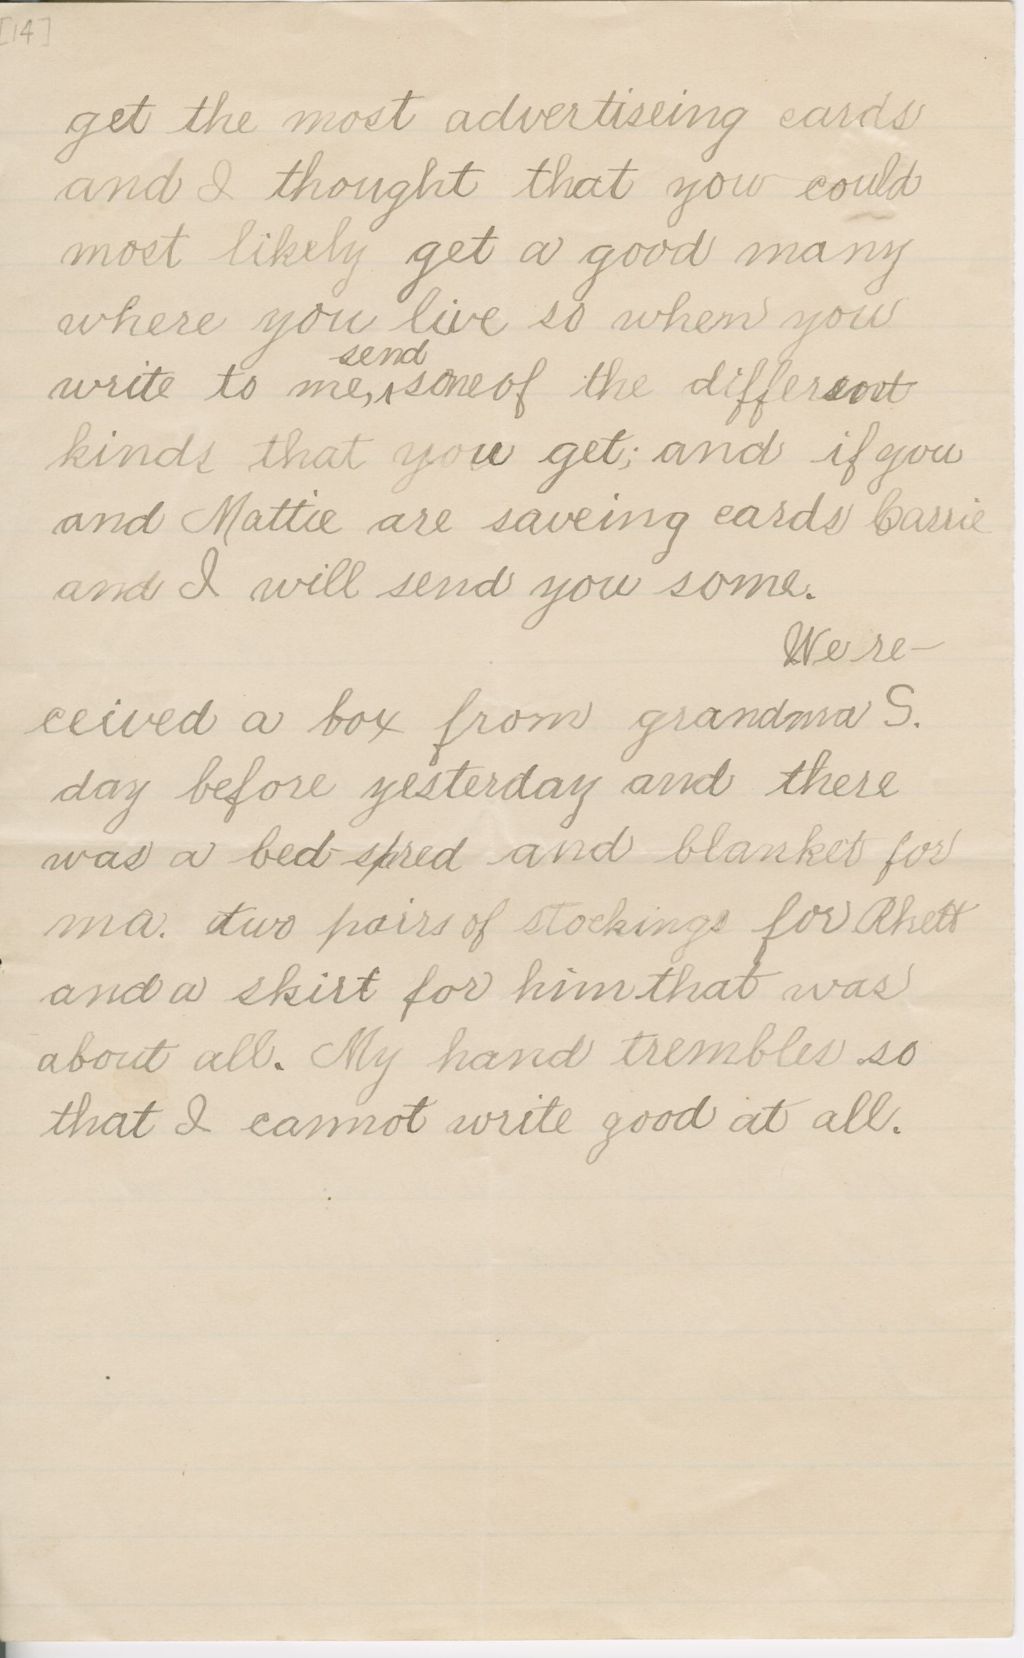 [14]
get the most advertiseing cards
and I thought that you could
most likely get a good many
where you live so when you
send
write to me, ^ some of the different
kinds that you get; and if you
and Mattie are saveing cards Carrie
and I will send you some.
We re-
ceived a box from grandma S.
day before yesterday and there
was a bed-spred and blanket for
ma. two pairs of stockings for Rhett
and a skirt for him that was
about all. My hand trembles so
that I cannot write good at all.